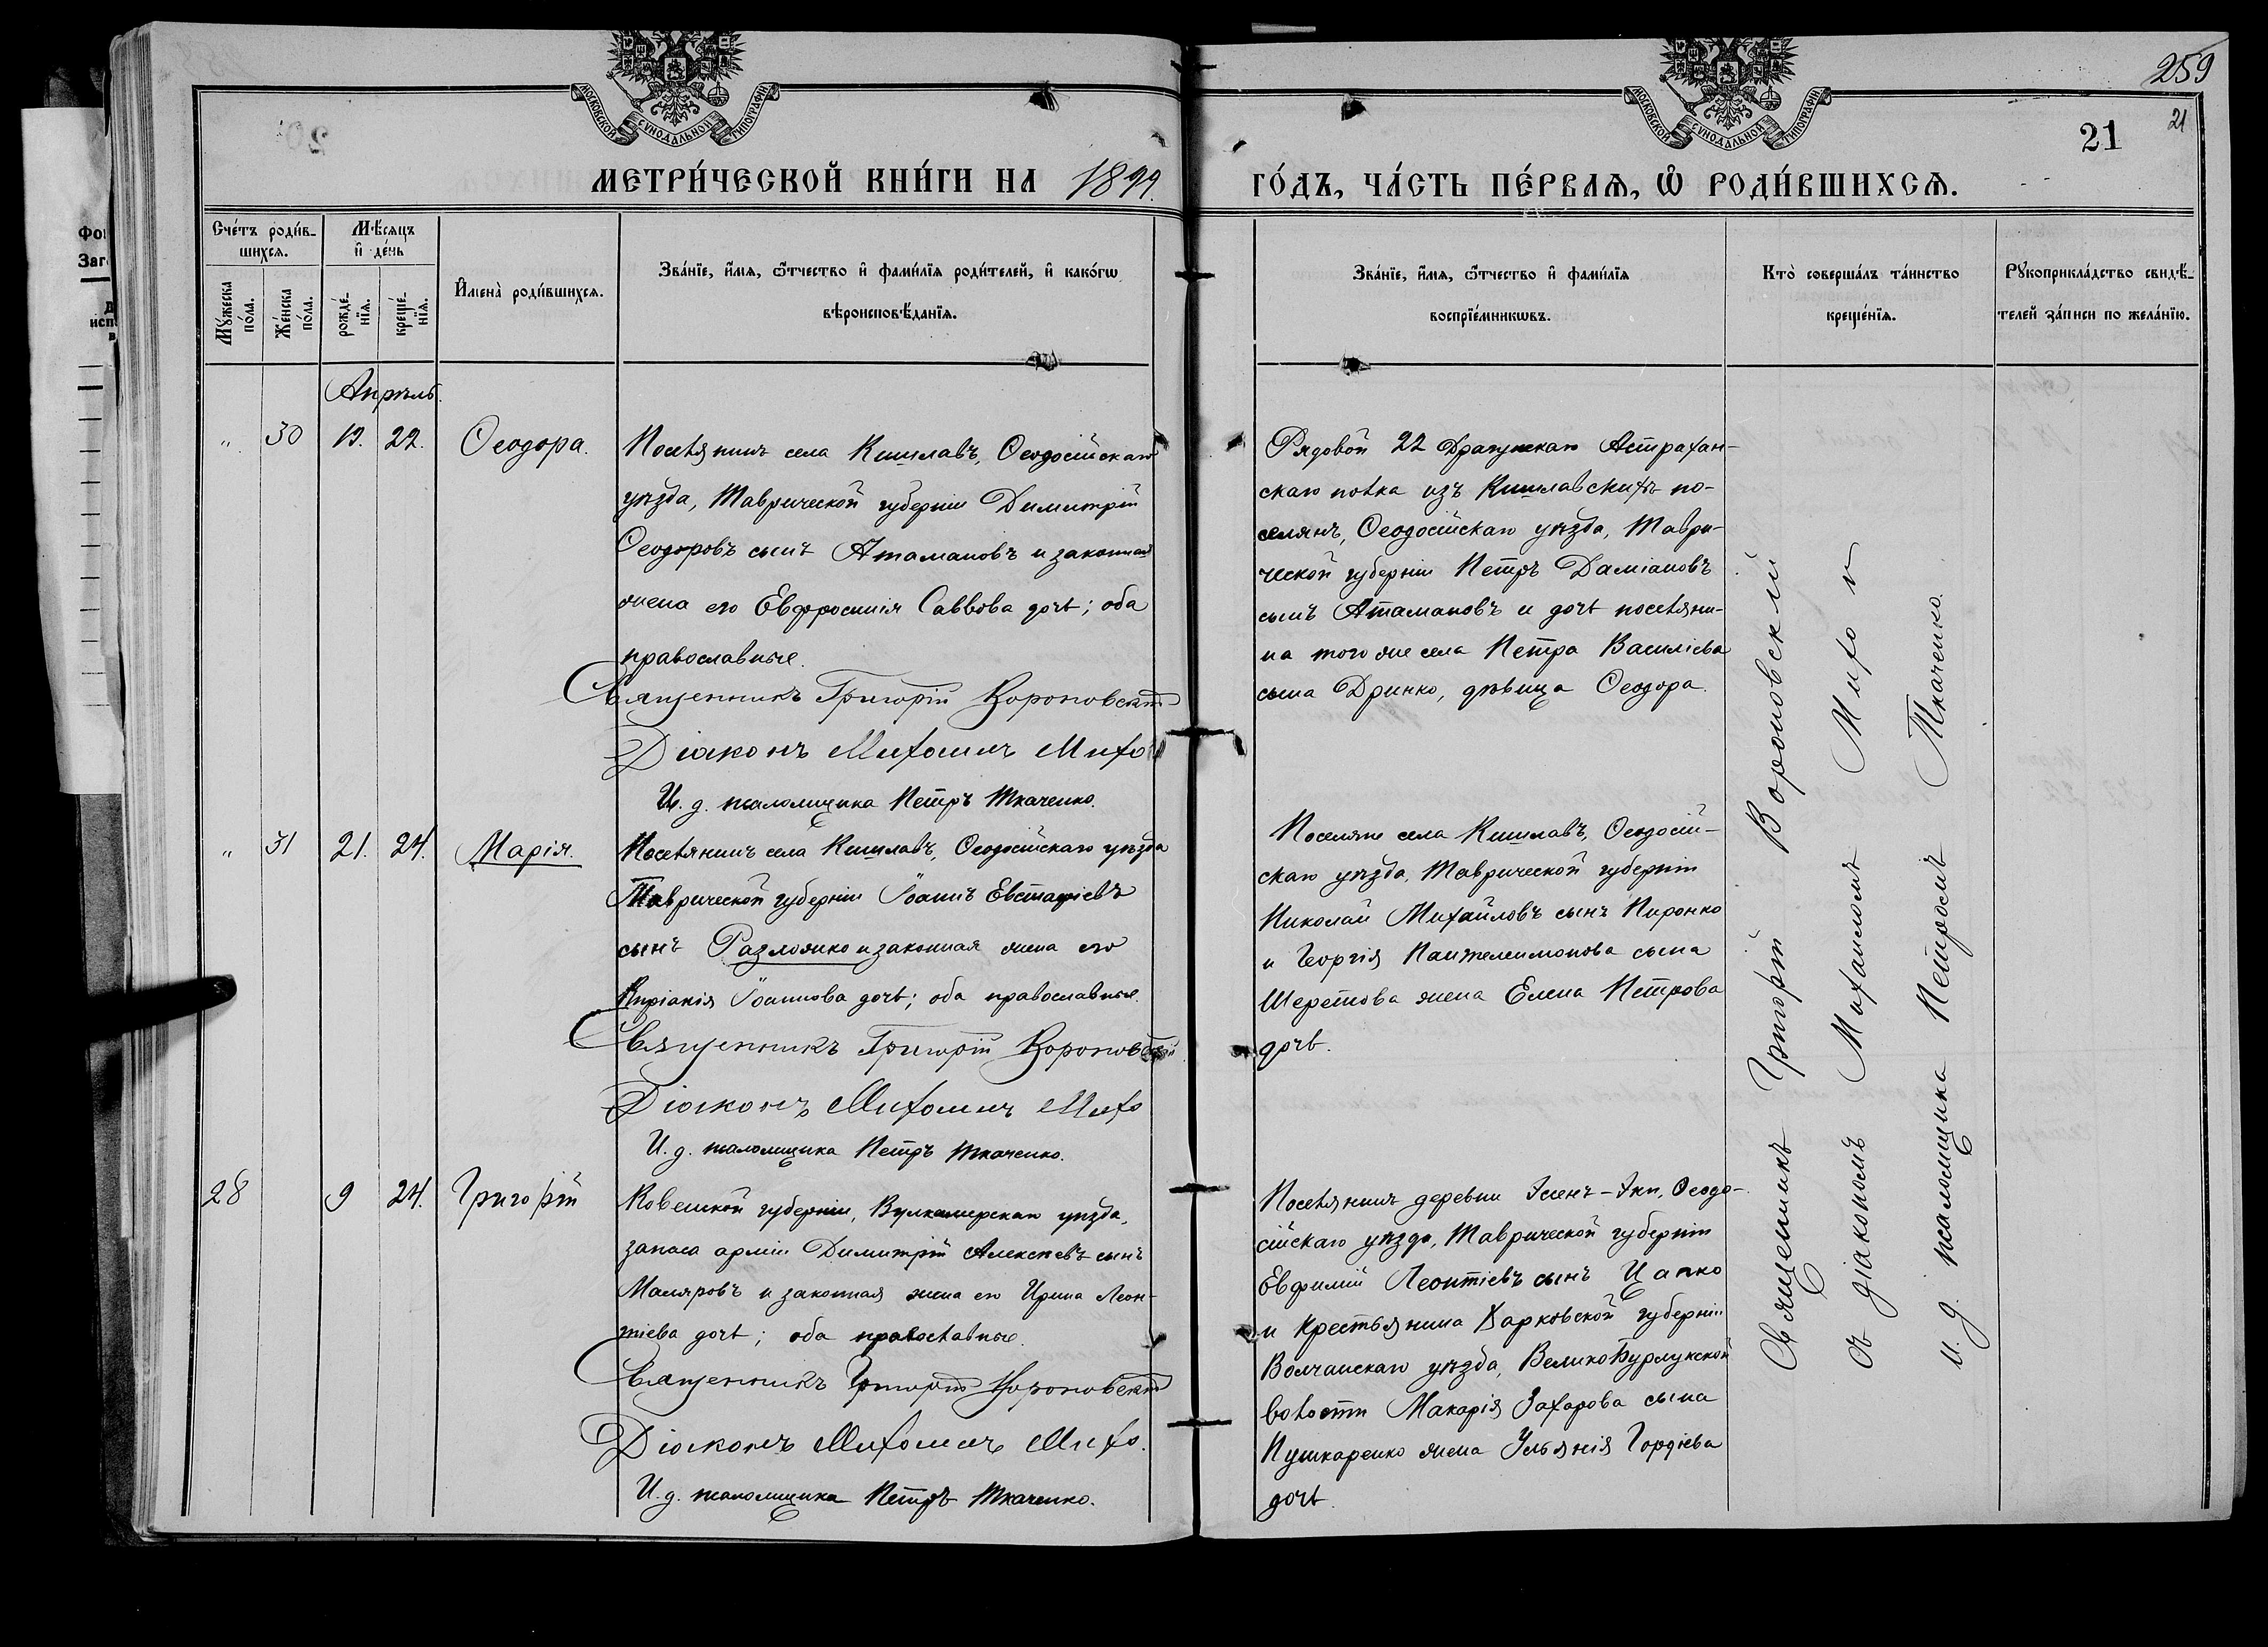 259
21
21
МОСКОВСКОЙ СѴНОДАЛЬНОЙ ТИПОГРАФІИ
МОСКОВСКОЙ СѴНОДАЛЬНОЙ ТИПОГРАФІИ
МЕТРИ́ЧЕСКОЙ КНИ́ГИ НА 1899.
ГО́ДЪ, ЧА́СТЬ ПЕ́РВАѦ, Ѡ РОДИ́ВШИХСѦ.
Сче́тъ роди́в-
шихсѧ.
Му́жеска по́ла.
Же́нска по́ла.
Мѣ́сѧцъ и҆ де́нь
рожде́-нїѧ.
креще́-нїѧ.
И҆мена̀ роди́вшихсѧ.
Зва́нїе, и҆́мѧ, ѻ҆́тчество и҆ фами́лїѧ роди́телей, и҆ како́гѡ
вѣроисповѣ́данїѧ.
Зва́нїе, и҆́мѧ, ѻ҆́тчество и҆ фами́лїѧ
воспрїе́мникѡвъ.
Кто̀ соверша́лъ та́инство
креще́нїѧ.
Рꙋкоприкла́дство свидѣ́-
телей за́писи по жела́нїю.
Апрѣль.
" 30 19. 22. Ѳеодора.
Поселянинъ села Кишлавъ, Ѳеодосійскаго
уѣзда, Таврической губерніи Димитрій
Ѳеодоровъ сынъ Атамановъ и законная
жена его Евфросинія Саввова дочь; оба
православные.
Священникъ Григорій Вороновскій
Діаконъ Михаилъ Михо
И. д. псаломщика Петръ Ткаченко.
Рядовой 22 Драгунскаго Астрахан-
скаго полка изъ Кишлавскихъ по-
селянъ, Ѳеодосійскаго уѣзда, Таври-
ческой губерніи Петръ Даміановъ
сынъ Атамановъ и дочь поселяни-
на того же села Петра Василіева
сына Дринко, дѣвица Ѳеодора.
" 31 21. 24. Марія.
Поселянинъ села Кишлавъ, Ѳеодосійскаго уѣзда
Таврической губерніи Іоаннъ Евстафіевъ
сынъ Разложко и законная жена его
Киріакія Іоаннова дочь; оба православные.
Священникъ Григорій Вороновскій
Діаконъ Михаилъ Михо
И. д. псаломщика Петръ Ткаченко.
Поселяне села Кишлавъ, Ѳеодосій-
скаго уѣзда, Таврической губерніи
Николай Михайловъ сынъ Пиронко
и Георгія Пантелеимонова сына
Шеретова жена Елена Петрова
дочь.
28 9 24. Григорій
Ковенской губерніи, Вилкомирскаго уѣзда,
запаса арміи Димитрій Алексѣевъ сынъ
Маляровъ и законная жена его Ирина Леон-
тіева дочь; оба православные.
Священникъ Григорій Вороновскій
Діаконъ Михаилъ Михо.
И. д. псаломщика Петръ Ткаченко.
Поселянинъ деревни Эссенъ-Эки, Ѳеодо-
сійскаго уѣзда, Таврической губерніи
Евфимій Леонтіевъ сынъ Цапко
и крестьянина Харковской губерніи
Волчанскаго уѣзда, ВеликоБурлукской
волости Макарія Захарова сына
Пушкаренко жена Ульянія Гордіева
дочь.
Священникъ Григорій Вороновскій
съ діакономъ Михаиломъ Михо
и. д. псаломщика Петромъ Ткаченко.